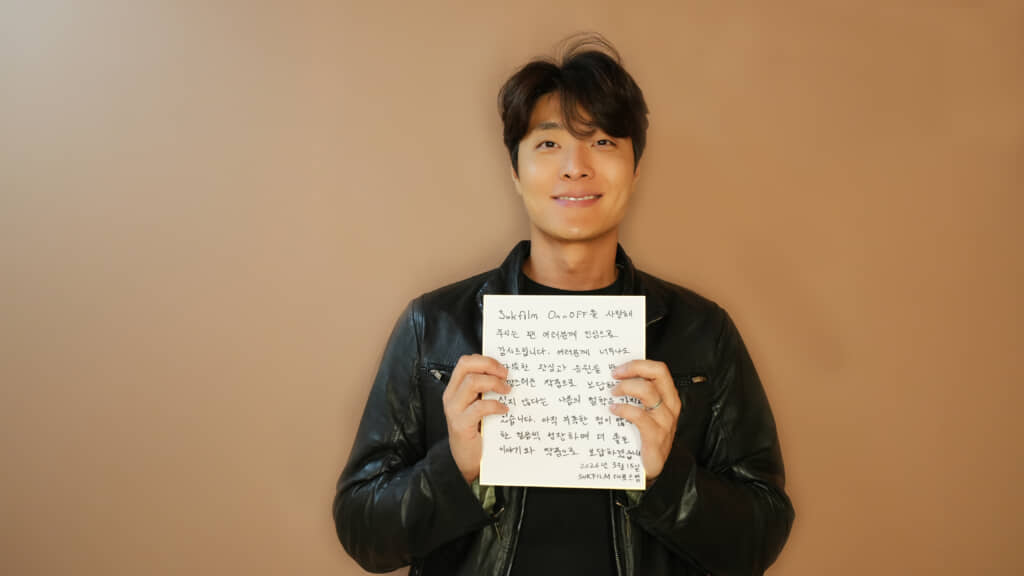 Sukfilm On_OFF를 사랑해
주시는 팬 여러분께 진심으로
감사드립니다. 여러분께 너무나도
관심과 응원을
작품으로 보답하
싶지 않다는 나름의 철학을
있습니다. 아직 부족한 점이
한 걸음씩 성장하며 더 좋은
이야기와 작품으로 보답하겠습니다
2026년 3월 15일
SUKFILM